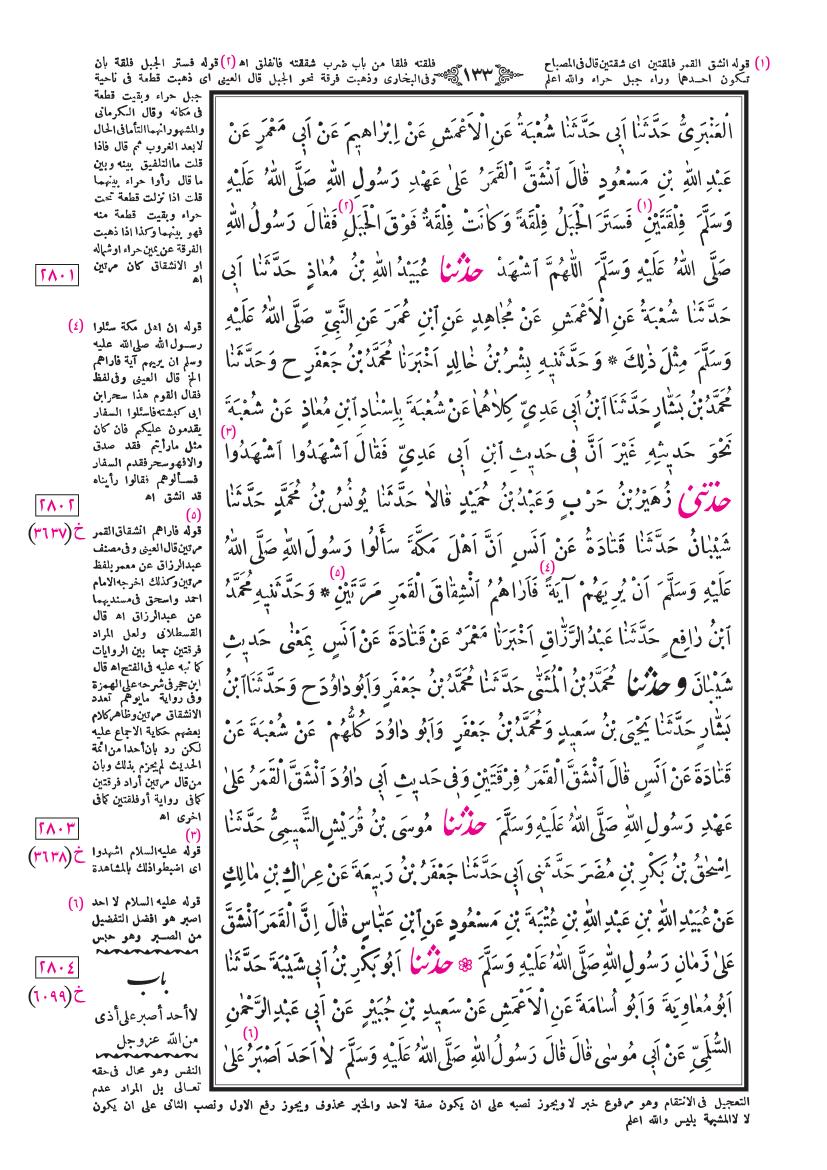 (١) قوله انشق القمر فلقتين اى شقتين قال فى المصباح
تكون احدهما وراء جبل حراء والله اعلم
١٣٣
فلقته فلقا من باب ضرب شققته فانفلق اه (٢) قوله فستر الجبل فلقة بان
وفى البخارى وذهبت فرقة نحو الجبل قال العينى اى ذهبت قطعة فى ناحية
جبل حراء وبقيت قطعة
فى مكانه وقال الكرمانى
والمشهور انهما التأما فى الحال
لا بعد الغروب ثم قال فاذا
قلت ما التلفيق بينه وبين
ما قال رأوا حراء بينهما
قلت اذا نزلت قطعة تحت
حراء وبقيت قطعة منه
فهو بينهما وكذا اذا ذهبت
الفرقة عن يمين حراء او شماله
او الانشقاق كان مرتين
اه
الْعَنْبَرِىُّ حَدَّثَنَا اَبِى حَدَّثَنَا شُعْبَةُ عَنِ الْاَعْمَشِ عَنْ اِبْرَاهِيمَ عَنْ اَبِى مَعْمَرٍ عَنْ
عَبْدِ اللهِ بْنِ مَسْعُودٍ قَالَ انْشَقَّ الْقَمَرُ عَلَى عَهْدِ رَسُولِ اللهِ صَلَّى اللهُ عَلَيْهِ
وَسَلَّمَ فِلْقَتَيْنِ (١) فَسَتَرَ الْجَبَلُ فِلْقَةً وَكَانَتْ فِلْقَةٌ فَوْقَ الْجَبَلِ (٢) فَقَالَ رَسُولُ اللهِ
صَلَّى اللهُ عَلَيْهِ وَسَلَّمَ اللّٰهُمَّ اشْهَدْ حَدَّثَنَا عُبَيْدُ اللهِ بْنُ مُعَاذٍ حَدَّثَنَا اَبِى
حَدَّثَنَا شُعْبَةُ عَنِ الْاَعْمَشِ عَنْ مُجَاهِدٍ عَنِ ابْنِ عُمَرَ عَنِ النَّبِىِّ صَلَّى اللهُ عَلَيْهِ
وَسَلَّمَ مِثْلَ ذٰلِكَ * وَحَدَّثَنِيهِ بِشْرُ بْنُ خَالِدٍ اَخْبَرَنَا مُحَمَّدُ بْنُ جَعْفَرٍ ح وَحَدَّثَنَا
مُحَمَّدُ بْنُ بَشَّارٍ حَدَّثَنَا ابْنُ اَبِى عَدِىٍّ كِلَاهُمَا عَنْ شُعْبَةَ بِاِسْنَادِ ابْنِ مُعَاذٍ عَنْ شُعْبَةَ
نَحْوَ حَدِيثِهِ غَيْرَ اَنَّ فِى حَدِيثِ ابْنِ اَبِى عَدِىٍّ فَقَالَ اشْهَدُوا اشْهَدُوا (٣)
حَدَّثَنِى زُهَيْرُ بْنُ حَرْبٍ وَعَبْدُ بْنُ حُمَيْدٍ قَالَا حَدَّثَنَا يُونُسُ بْنُ مُحَمَّدٍ حَدَّثَنَا
شَيْبَانُ حَدَّثَنَا قَتَادَةُ عَنْ اَنَسٍ اَنَّ اَهْلَ مَكَّةَ سَأَلُوا رَسُولَ اللهِ صَلَّى اللهُ
عَلَيْهِ وَسَلَّمَ اَنْ يُرِيَهُمْ آيَةً (٤) فَاَرَاهُمُ انْشِقَاقَ الْقَمَرِ مَرَّتَيْنِ (٥) * وَحَدَّثَنِيهِ مُحَمَّدُ
ابْنُ رَافِعٍ حَدَّثَنَا عَبْدُ الرَّزَّاقِ اَخْبَرَنَا مَعْمَرٌ عَنْ قَتَادَةَ عَنْ اَنَسٍ بِمَعْنَى حَدِيثِ
شَيْبَانَ وحَدَّثَنَا مُحَمَّدُ بْنُ الْمُثَنَّى حَدَّثَنَا مُحَمَّدُ بْنُ جَعْفَرٍ وَاَبُو دَاوُدَ ح وَحَدَّثَنَا ابْنُ
بَشَّارٍ حَدَّثَنَا يَحْيَى بْنُ سَعِيدٍ وَمُحَمَّدُ بْنُ جَعْفَرٍ وَاَبُو دَاوُدَ كُلُّهُمْ عَنْ شُعْبَةَ عَنْ
قَتَادَةَ عَنْ اَنَسٍ قَالَ انْشَقَّ الْقَمَرُ فِرْقَتَيْنِ وَفِى حَدِيثِ اَبِى دَاوُدَ انْشَقَّ الْقَمَرُ عَلَى
عَهْدِ رَسُولِ اللهِ صَلَّى اللهُ عَلَيْهِ وَسَلَّمَ حَدَّثَنَا مُوسَى بْنُ قُرَيْشٍ التَّمِيمِىُّ حَدَّثَنَا
اِسْحٰقُ بْنُ بَكْرِ بْنِ مُضَرَ حَدَّثَنِى اَبِى حَدَّثَنَا جَعْفَرُ بْنُ رَبِيعَةَ عَنْ عِرَاكِ بْنِ مَالِكٍ
عَنْ عُبَيْدِ اللهِ بْنِ عَبْدِ اللهِ بْنِ عُتْبَةَ بْنِ مَسْعُودٍ عَنِ ابْنِ عَبَّاسٍ قَالَ اِنَّ الْقَمَرَ انْشَقَّ
عَلَى زَمَانِ رَسُولِ اللهِ صَلَّى اللهُ عَلَيْهِ وَسَلَّمَ حَدَّثَنَا اَبُو بَكْرِ بْنُ اَبِى شَيْبَةَ حَدَّثَنَا
اَبُو مُعَاوِيَةَ وَاَبُو اُسَامَةَ عَنِ الْاَعْمَشِ عَنْ سَعِيدِ بْنِ جُبَيْرٍ عَنْ اَبِى عَبْدِ الرَّحْمٰنِ
السُّلَمِىِّ عَنْ اَبِى مُوسَى قَالَ قَالَ رَسُولُ اللهِ صَلَّى اللهُ عَلَيْهِ وَسَلَّمَ لَا اَحَدَ اَصْبَرُ (٦) عَلَى
٢٨٠١
(٤) قوله ان اهل مكة سئلوا
رسول الله صلى الله عليه
وسلم ان يريهم آية فاراهم
الخ قال العينى وفى لفظ
فقال القوم هذا سحر ابن
ابى كبشة فاسئلوا السفار
يقدمون عليكم فان كان
مثل ما رأيتم فقد صدق
والا فهو سحر فقدم السفار
فسألوهم فقالوا رأيناه
قد انشق اه
٢٨٠٢
خ (٣٦٣٧)
(٥)
قوله فاراهم انشقاق القمر
مرتين قال العينى وفى مصنف
عبدالرزاق عن معمر بلفظ
مرتين وكذلك اخرجه الامام
احمد واسحق فى مسنديهما
عن عبدالرزاق اه قال
القسطلانى ولعل المراد
فرقتين جمعا بين الروايات
كما نبه عليه فى الفتح اه قال
ابن حجر فى شرحه على الهمزة
وفى رواية ما يوهم تعدد
الانشقاق مرتين وظاهر كلام
بعضهم حكاية الاجماع عليه
لكن رد بأن أحدا من ائمة
الحديث لم يجزم بذلك وبان
من قال مرتين أراد فرقتين
كما فى رواية أو فلقتين كما فى
اخرى اه
٢٨٠٣
خ (٣٦٣٨)
(٣)
قوله عليه السلام اشهدوا
اى اضبطوا ذلك بالمشاهدة
(٦) قوله عليه السلام لا احد
اصبر هو افضل التفضيل
من الصبر وهو حبس
٢٨٠٤
خ (٦٠٩٩)
باب
لا أحد أصبر على أذى
من الله عز وجل
النفس وهو محال فى حقه
تعالى بل المراد عدم
التعجيل فى الانتقام وهو مرفوع خبر لا ويجوز نصبه على ان يكون صفة لاحد والخبر محذوف ويجوز رفع الاول ونصب الثانى على ان يكون
لا لا المشبهة بليس والله اعلم